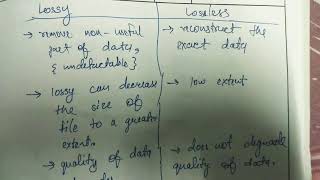 Lossy
Lossless
→ remove non-useful
part of data,
{ undetectable }
→ reconstruct the
exact data
→ lossy can decrease
the size of
file to a greater
extent.
→ low extent
→ quality of data
→ does not degrade
quality of data.